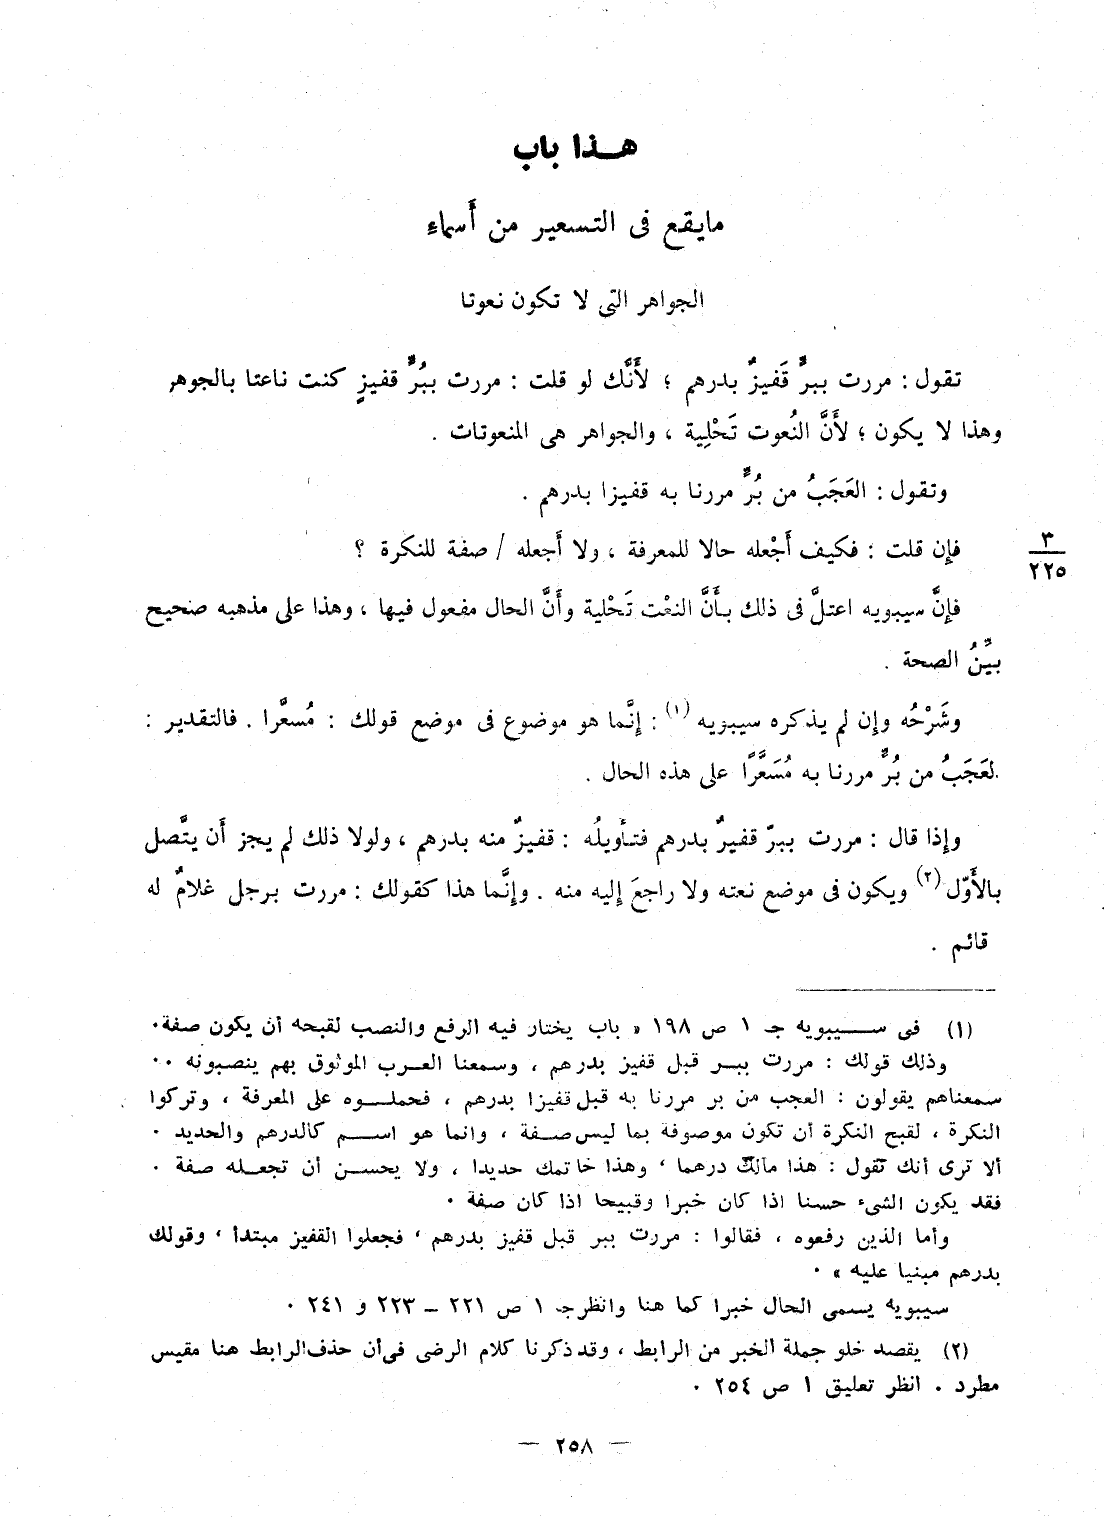 هـذا باب
مايقع فى التسعير من أَسماء
الجواهر التى لا تكون نعوتا
تقول : مررت ببرٍّ قَفيزٌ بدرهم ؛ لأَنَّك لو قلت : مررت ببُرٍّ قفيزٍ كنت ناعتا بالجوهر
وهذا لا يكون ؛ لأَنَّ النُعوت تَحْلِية ، والجواهر هى المنعوتات .
وتقول : العَجَبُ من بُرٍّ مررنا به قفيزا بدرهم .
فإِن قلت : فكيف أَجْعله حالا للمعرفة ، ولا أَجعله / صفة للنكرة ؟
٣
٢٢٥
فإِنَّ سيبويه اعتلَّ فى ذلك بأَنَّ النعْت تَحْلية وأَنَّ الحال مفعول فيها ، وهذا على مذهبه صحيح
بيِّنُ الصحة .
وشَرْحُه وإِن لم يذكره سيبويه (١) : إِنَّما هو موضوع فى موضع قولك : مُسعَّرا . فالتقدير :
لعَجَبُ من بُرٍّ مررنا به مُسَعَّرًا على هذه الحال .
وإِذا قال : مررت ببرّ قفيرٌ بدرهم فتأويلُه : قفيزٌ منه بدرهم ، ولولا ذلك لم يجز أَن يتَّصل
بالأَوّل (٢) ويكون فى موضع نعته ولا راجعَ إِليه منه . وإِنَّما هذا كقولك : مررت برجل غلامٌ له
قائم .
(١) فى سـيبويه جـ ١ ص ١٩٨ « باب يختار فيه الرفع والنصب لقبحه أن يكون صفة٠
وذلك قولك : مررت ببـر قبل قفيز بدرهم ، وسمعنا العـرب الموثوق بهم ينصبونه ٠٠
سمعناهم يقولون : العجب من بر مررنا به قبل قفيزا بدرهم ، فحملـوه على المعرفة ، وتركوا
النكرة ، لقبح النكرة أن تكون موصوفة بما ليس صـفة ، وانما هو اسـم كالدرهم والحديد ٠
ألا ترى أنك تقول : هذا مالك درهما ، وهذا خاتمك حديدا ، ولا يحسـن أن تجعـله صفة ٠
فقد يكون الشىء حسنا اذا كان خبرا وقبيحا اذا كان صفة ٠
وأما الذين رفعوه ، فقالوا : مررت ببر قبل قفيز بدرهم ، فجعلوا القفيز مبتدأ ، وقولك
بدرهم مبنيا عليه » ٠
سيبويه يسمى الحال خبرا كما هنا وانظر جـ ١ ص ٢٢١ – ٢٢٣ و ٢٤١ ٠
(٢) يقصد خلو جملة الخبر من الرابط ، وقد ذكرنا كلام الرضى فى أن حذف الرابط هنا مقيس
مطرد . انظر تعليق ١ ص ٢٥٤ ٠
— ٢٥٨ —